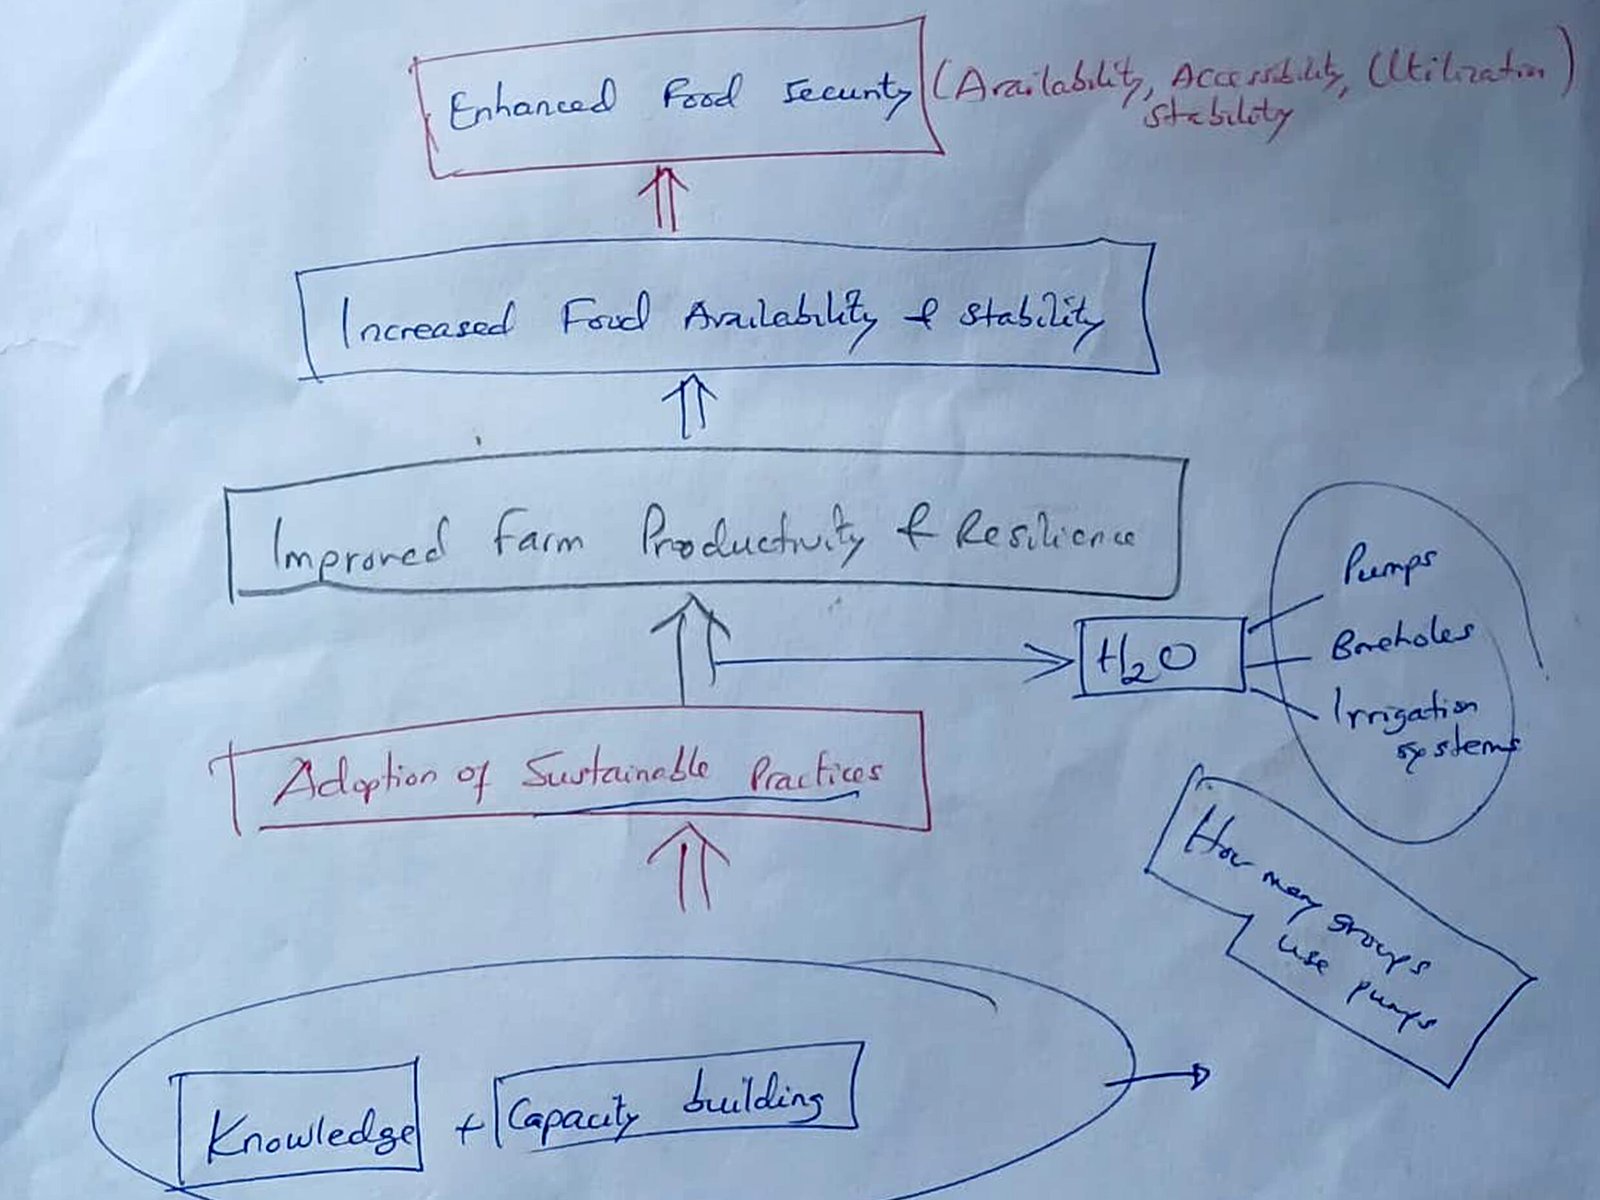 Enhanced Food Security (Availability, Accessibility, Utilization)
Stability
Increased Food Availability & Stability
Improved Farm Productivity & Resilience
Pumps
H2O
Boreholes
Irrigation
systems
Adoption of Sustainable Practices
How many groups
use pumps
Knowledge + Capacity building